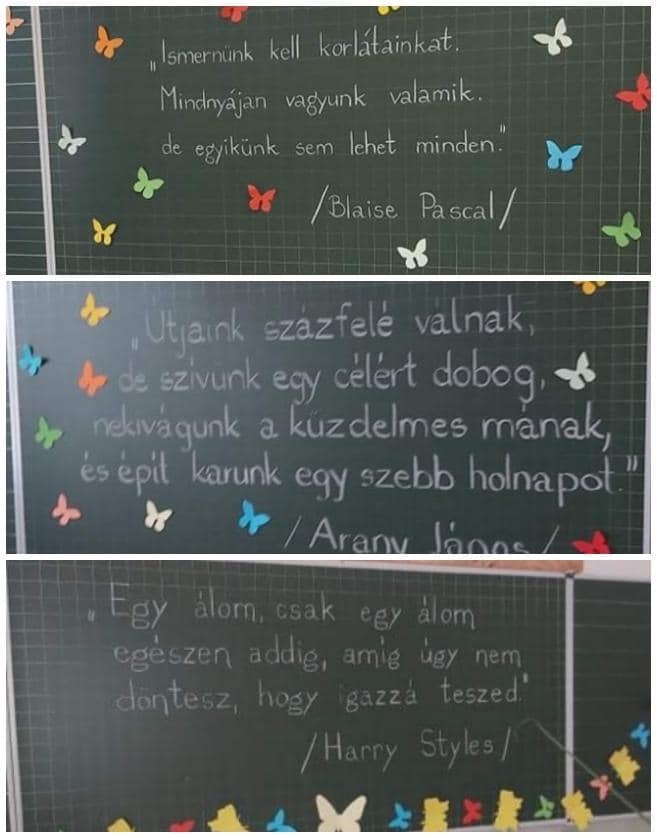 „Ismernünk kell korlátainkat.
Mindnyájan vagyunk valamik.
de egyikünk sem lehet minden."
/Blaise Pascal/
„Útjaink százfelé válnak,
de szívünk egy célért dobog,
nekivágunk a küzdelmes mának,
és épít karunk egy szebb holnapot."
/Arany János/
„Egy álom, csak egy álom
egészen addig, amíg úgy nem
döntesz, hogy igazzá teszed."
/Harry Styles/